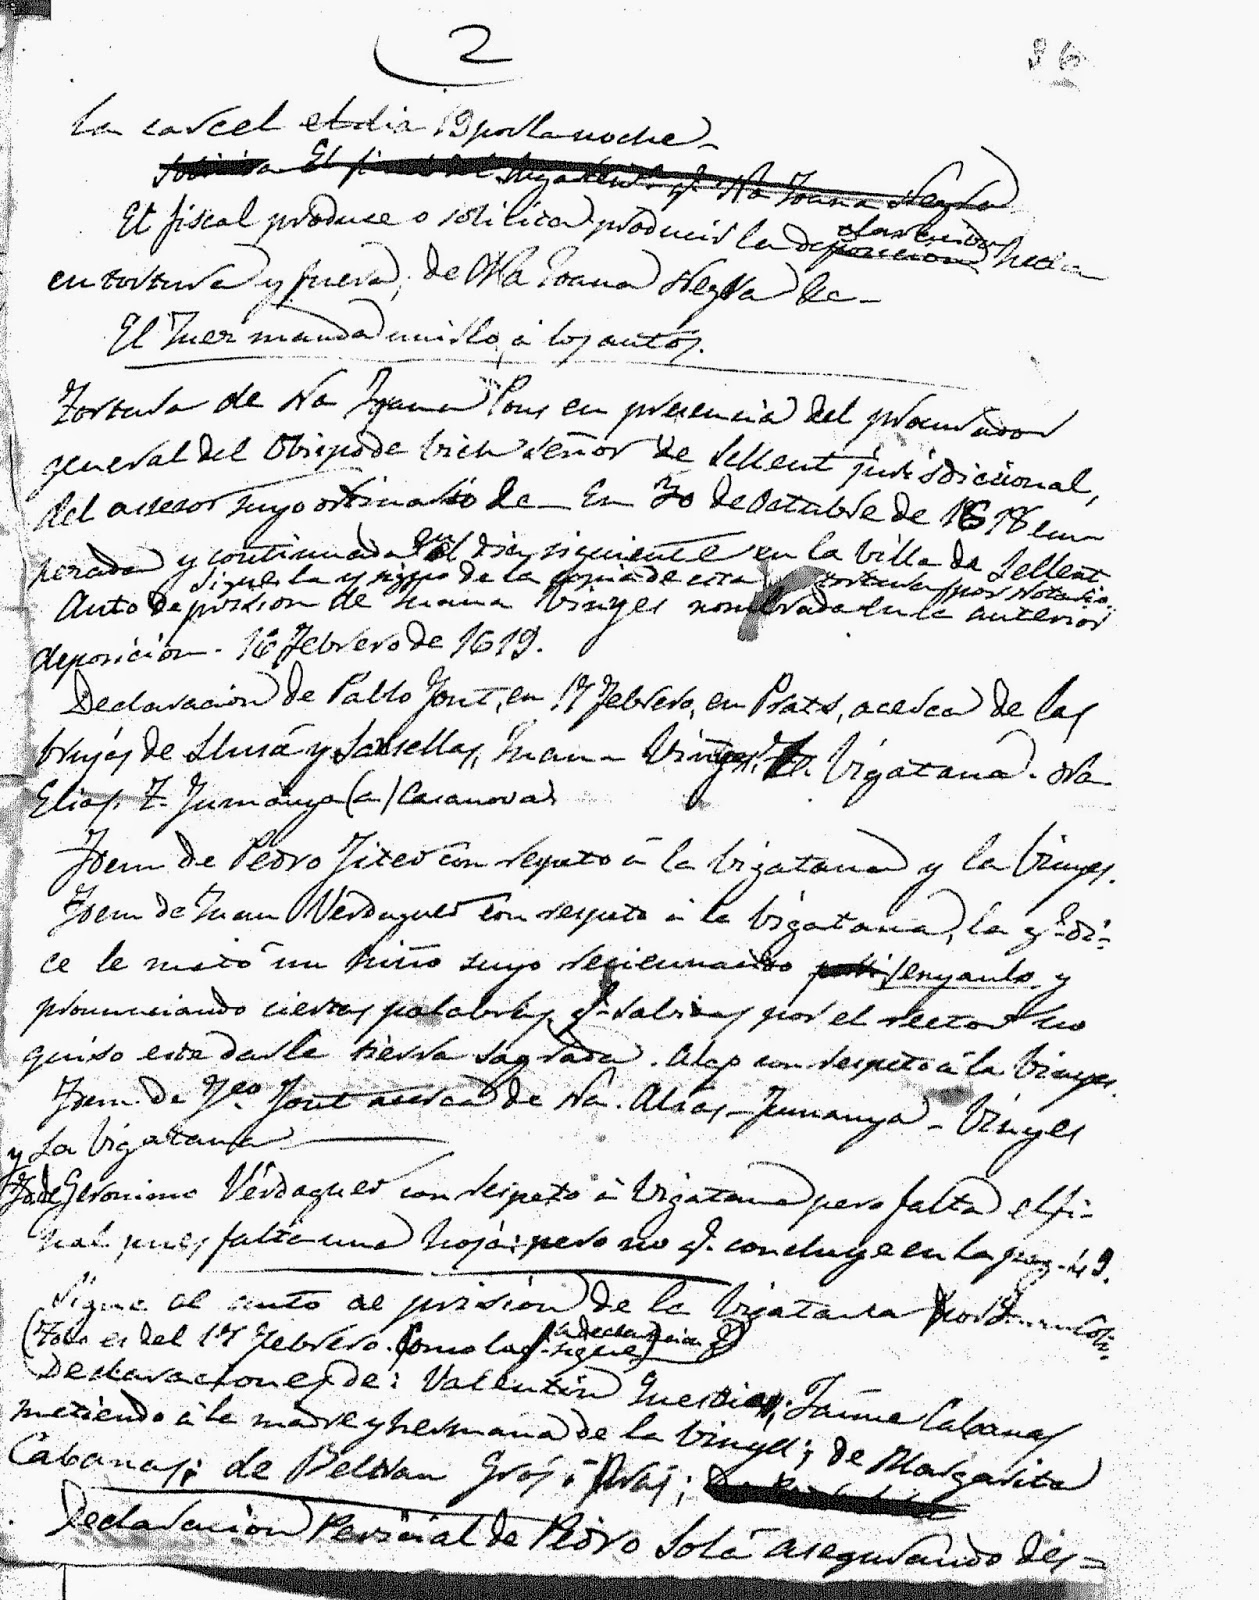 2
36
la carcel el dia 19 por la noche
El fiscal produce o solicita producir la declaracion hecha
en tortura y fuera, de Na Joana Negra &a-
El Juez manda unirlo, á los autos.
Tortura de Na Joana Pons en presencia del procurador
general del Obispo de Vich señor de Sellent jurisdiccional,
del asesor suyo ordinario &a- En 30 de Octubre de 1618 em-
pezada y continuada en el dia siguiente en la Villa de Sellent
Sigue la y signo de la copia de esta tortura por Notario.
Auto de prision de Juana Vinyes nombrada en la anterior
deposición. 16 Febrero de 1619.
Declaracion de Pablo Font, en 17 Febrero, en Prats, acerca de las
brujas de Llusá y Salsellas, Juana Vinyes, La Vigatana. Na
Elias. Jumanya (a) Casanova
Idem de Pedro Fiter con respeto á la Vigatana y la Vinyes.
Idem de Juan Verdaguer con respeto á la Vigatana, la q.e di-
ce le mató un niño suyo recien nacido senyanlo y
pronunciando ciertas palabras q.e sabidas por el rector no
quiso este darle tierra sagrada. Algo con respeto á la Vinyes.
Idem. de Fco. Font acerca de Na. Alias-Jumanya- Vinyes
y La Vigatana
Id de Geronimo Verdaguer con respeto á Vigatana pero falta el fi-
nal pues falta una hoja: pero no q.e concluye en la pag. 49.
Sigue el auto de prisión de la Vigatana
(Todo es del 17 Febrero. Como la declaracion q.e sigue)
Declaraciones de: Valentin Jaime Cabanas
metiendo á la madre y hermana de la Vinyes; de Margarita
Cabanas; de Beltran Gros ó Pras;
Declaracion Pericial de Pedro Solá asegurando des=